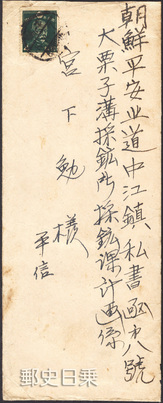 朝鮮平安北道中江鎮私書函第八號
大栗子溝採鉱所採鉱課計画係
宮下勉様
平信
郵史日乗